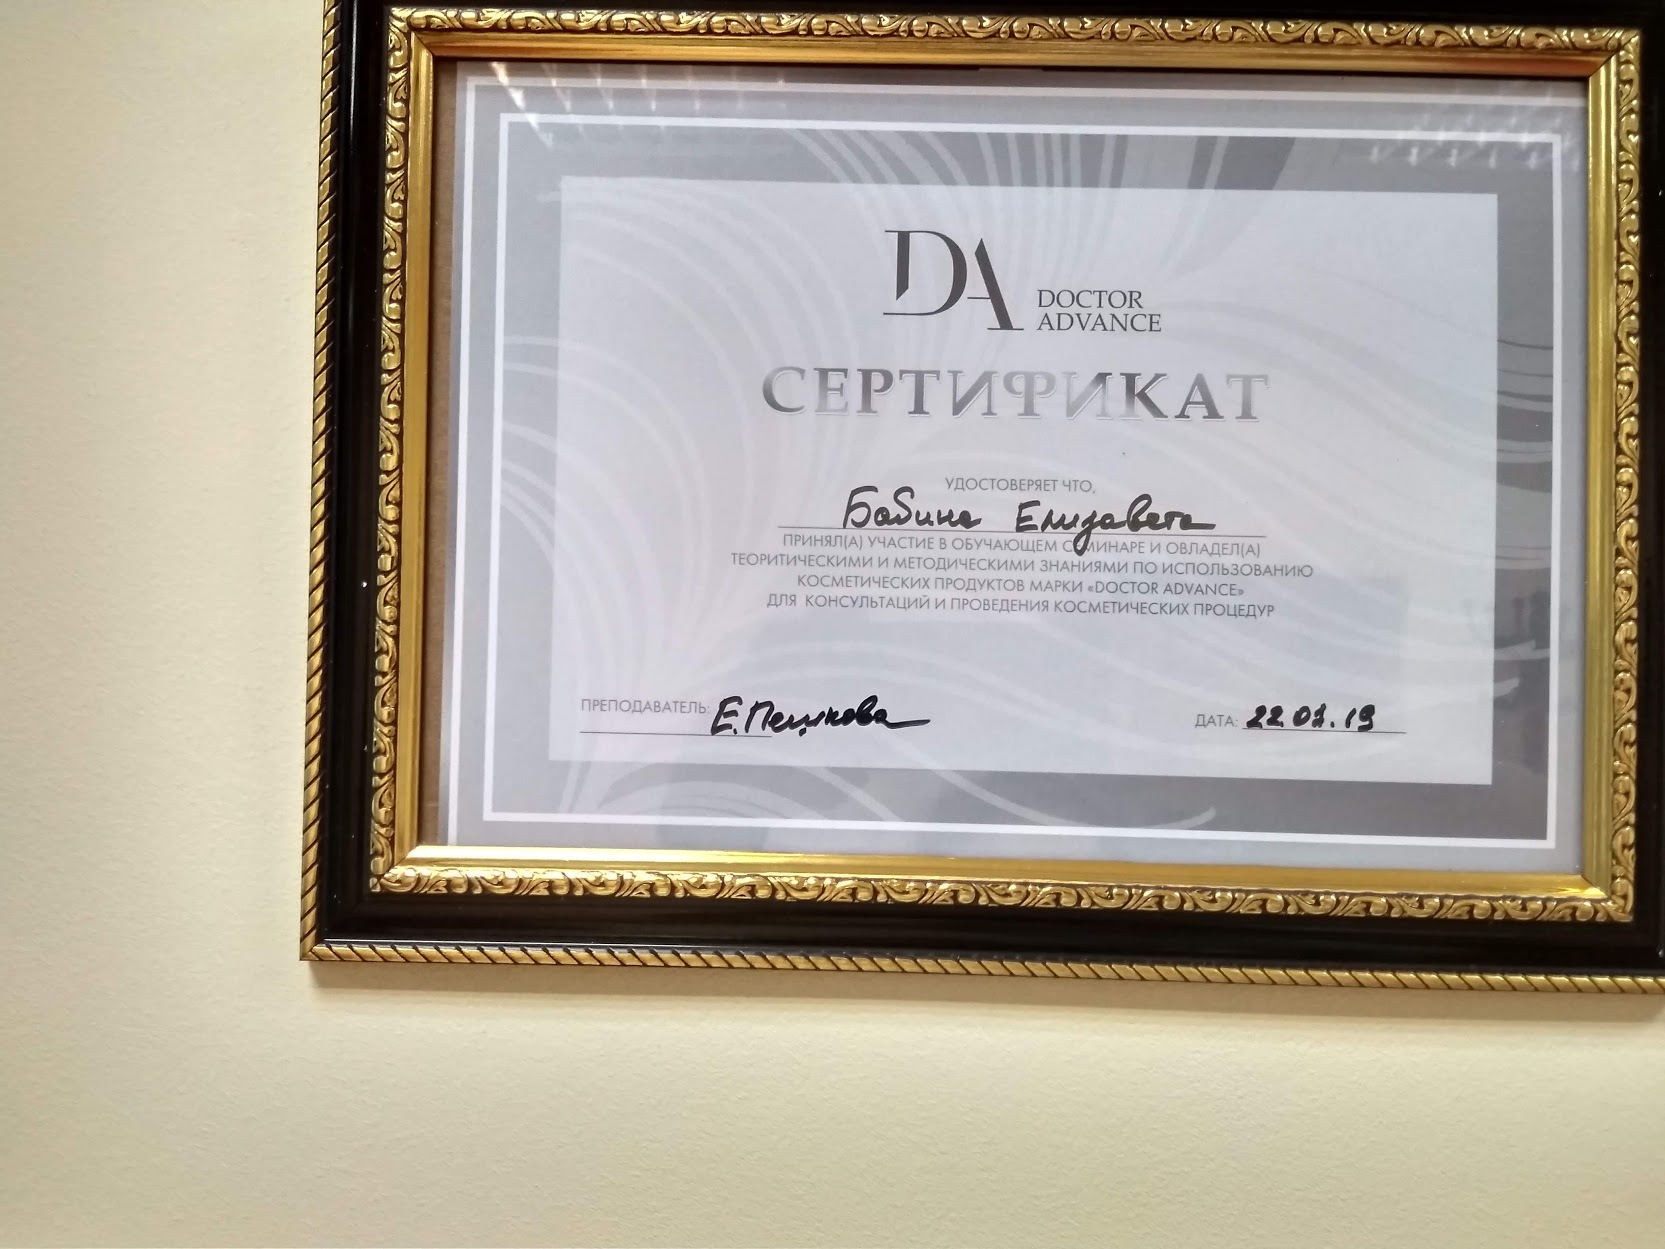 DA DOCTOR
ADVANCE
СЕРТИФИКАТ
УДОСТОВЕРЯЕТ ЧТО,
Бабина Елизавета
ПРИНЯЛ(А) УЧАСТИЕ В ОБУЧАЮЩЕМ СЕМИНАРЕ И ОВЛАДЕЛ(А)
ТЕОРИТИЧЕСКИМИ И МЕТОДИЧЕСКИМИ ЗНАНИЯМИ ПО ИСПОЛЬЗОВАНИЮ
КОСМЕТИЧЕСКИХ ПРОДУКТОВ МАРКИ «DOCTOR ADVANCE»
ДЛЯ КОНСУЛЬТАЦИЙ И ПРОВЕДЕНИЯ КОСМЕТИЧЕСКИХ ПРОЦЕДУР
ПРЕПОДАВАТЕЛЬ: Е.Пешкова ДАТА: